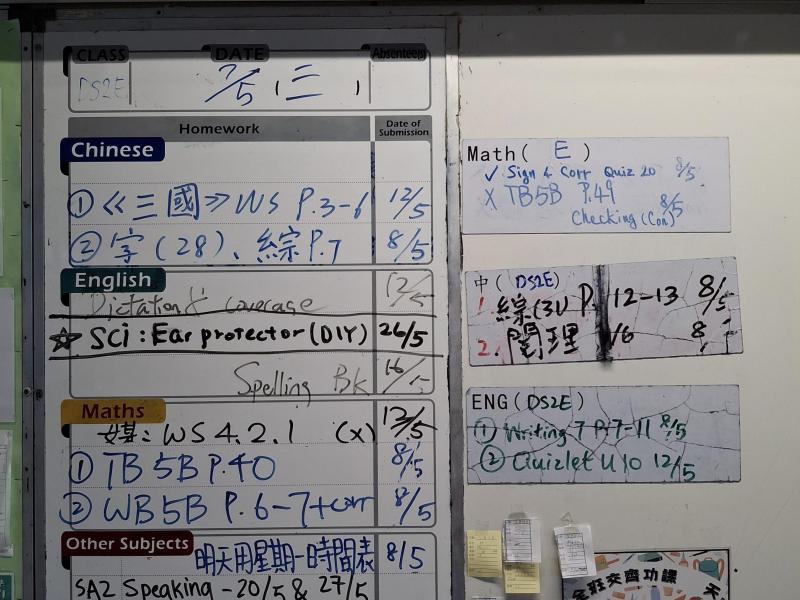 CLASS DATE Absentee(s)
DS2E 7/5 (三)
Homework Date of Submission
Chinese
① 《三國》WS P.3-6 12/5
② 字(28)、綜 P.7 8/5
English
Dictation & coverage 12/5
☆ Sci: Ear protector (DIY) 26/5
Spelling Bk 16/5
Maths
媒: WS 4.2.1 (x) 12/5
① TB 5B P.40 8/5
② WB 5B P. 6-7 + corr 8/5
Other Subjects
明天用星期一時間表 8/5
SA2 Speaking - 20/5 & 27/5
Math( E )
✓ Sign & Corr Quiz 20 8/5
X TB5B P.49
Checking (Con) 8/5
中( DS2E)
1. 綜(31) P. 12-13 8/5
2. 閱理 16 8
ENG (DS2E)
① Writing 7 P.7-11 8/5
② Quizlet U10 12/5
全班交齊功課
天